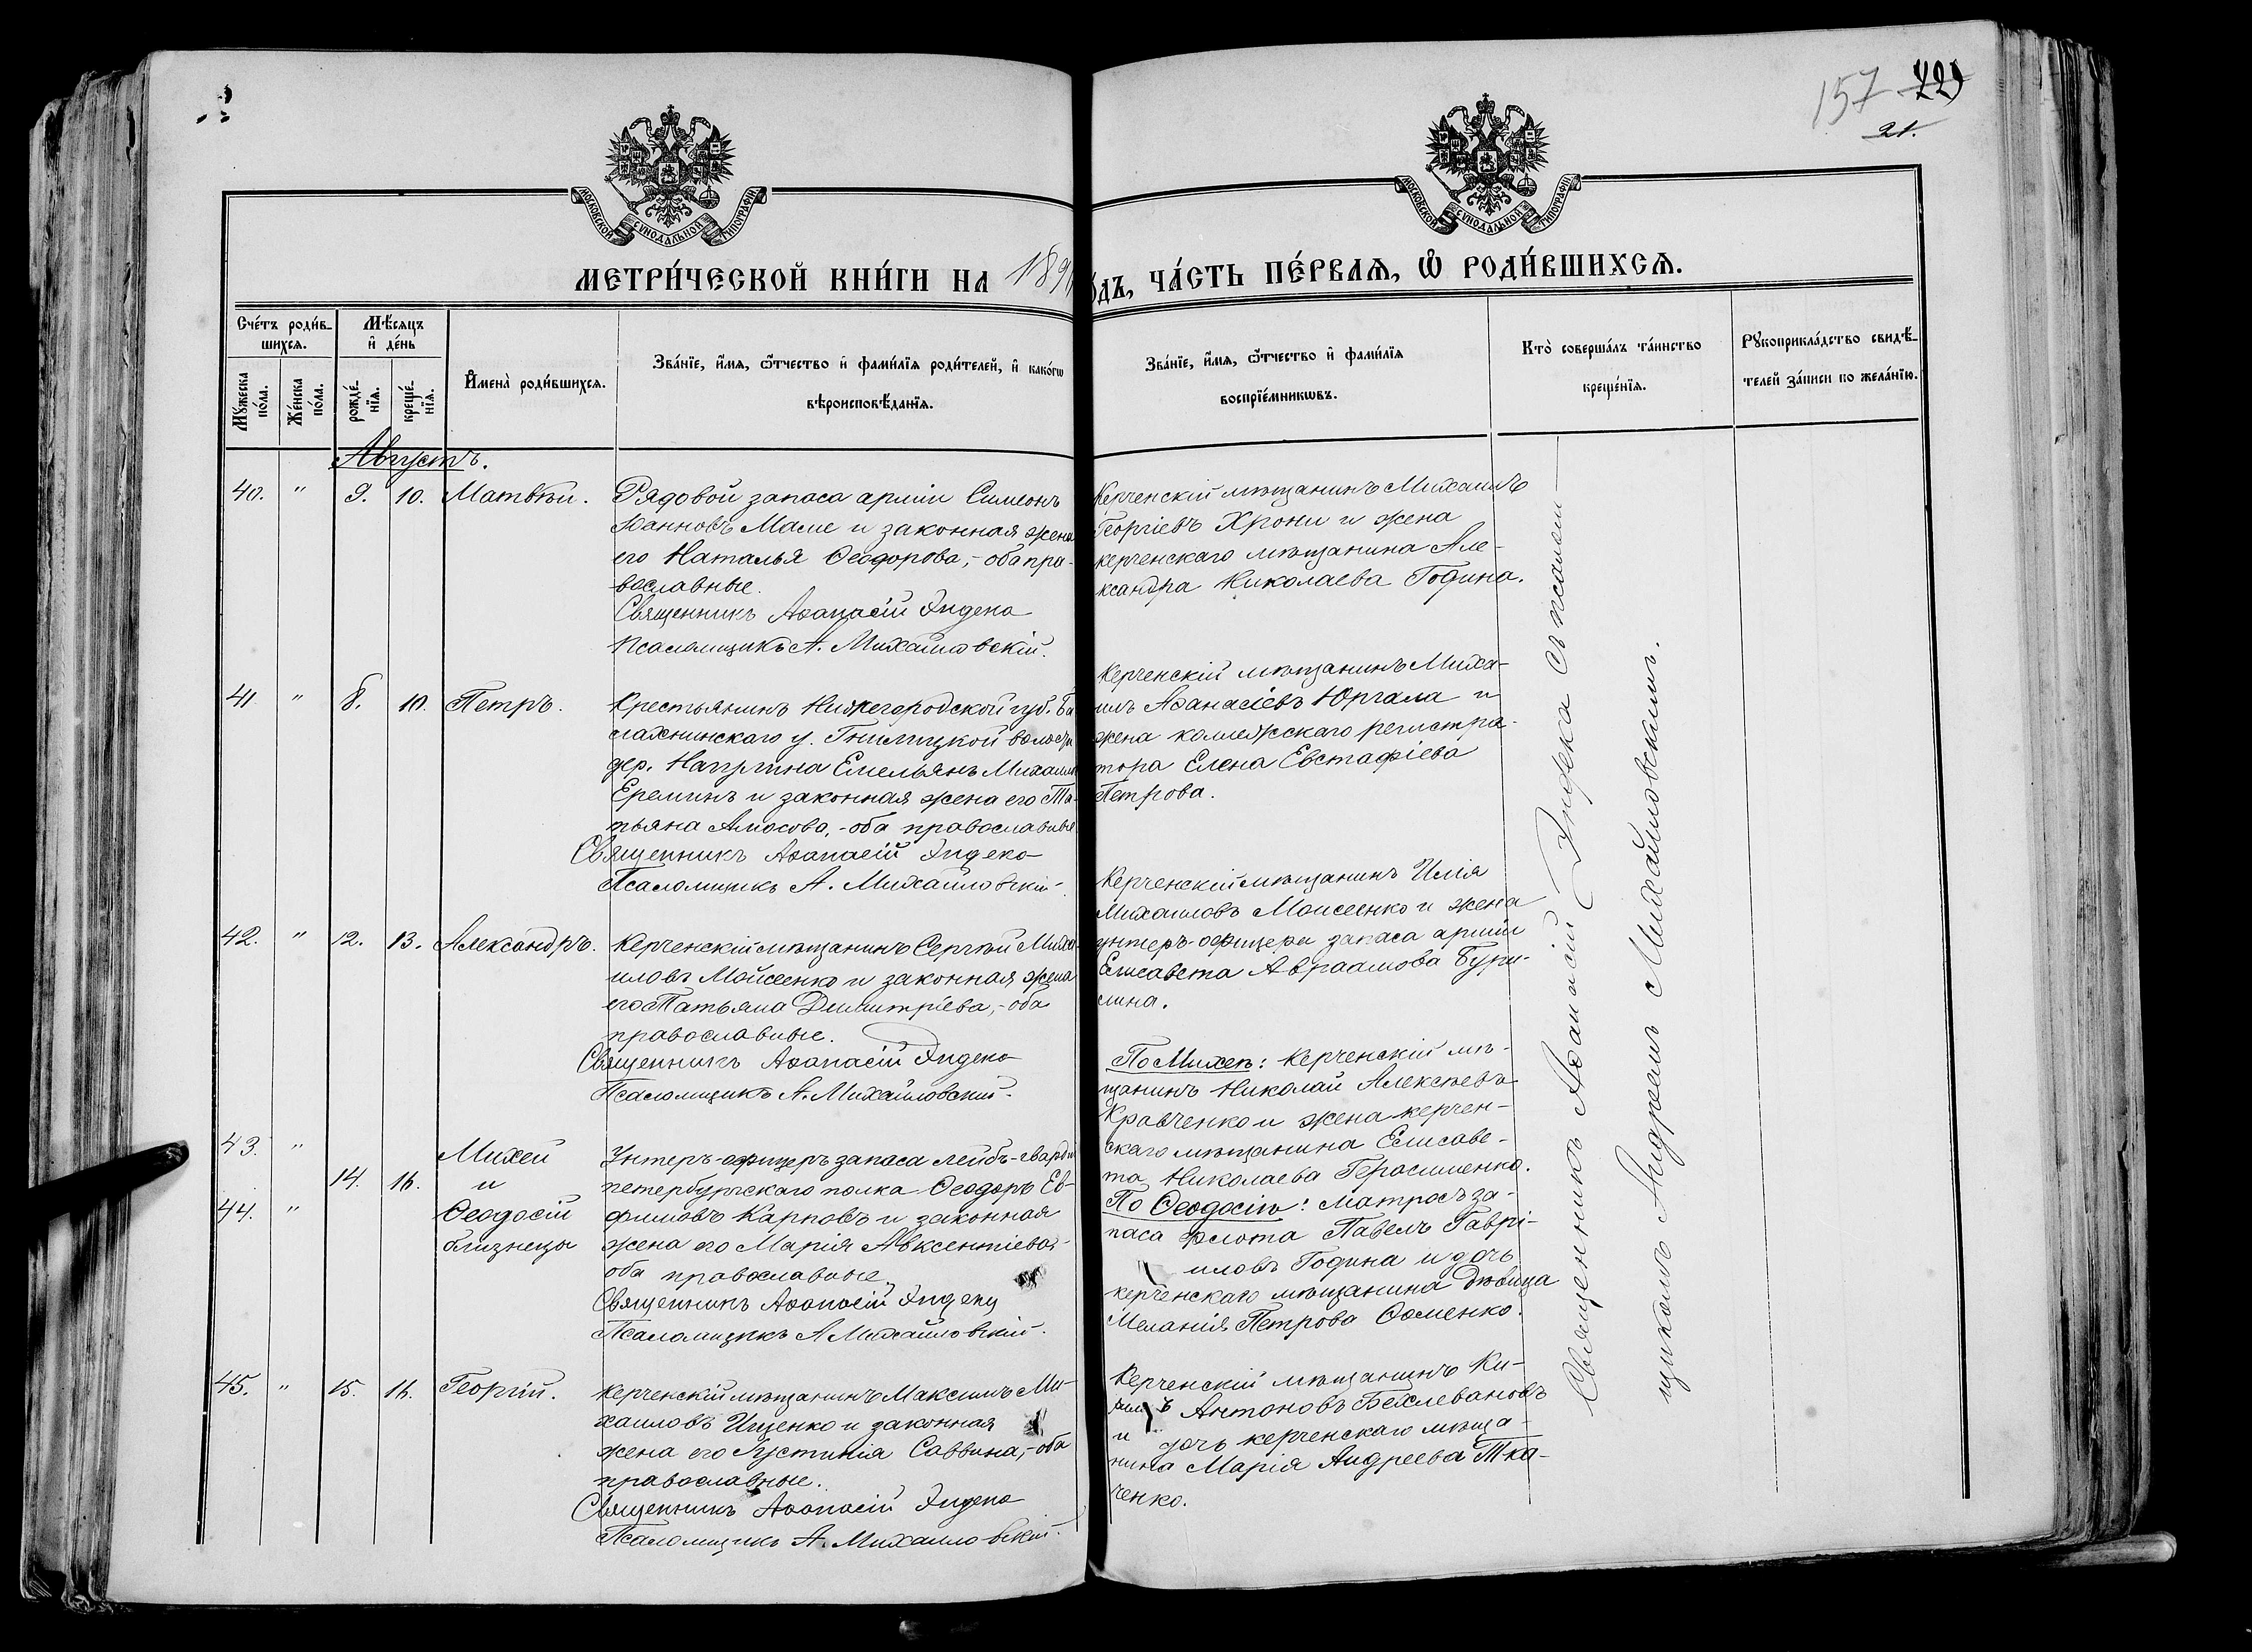 157 729
21.
МОСКОВСКОЙ СѴНОДАЛЬНОЙ ТИПОГРАФІИ
МОСКОВСКОЙ СѴНОДАЛЬНОЙ ТИПОГРАФІИ
МЕТРИ́ЧЕСКОЙ КНИ́ГИ НА 189
о́дъ, ЧА́СТЬ ПЕ́РВАѦ, Ѽ РОДИ́ВШИХСѦ.
Сче́тъ роди́в-
шихсѧ.
Мꙋ́жеска по́ла.
Же́нска по́ла.
Мѣ́сѧцъ
и҆ де́нь
рожде́-
нїѧ.
креще́-
нїѧ.
И҆мена̀ роди́вшихсѧ.
Зва́нїе, и҆́мѧ, ѻ҆́тчество и҆ фами́лїѧ роди́телей, и҆ како́гѡ
вѣроисповѣ́данїѧ.
Зва́нїе, и҆́мѧ, ѻ҆́тчество и҆ фами́лїѧ
воспрїе́мникѡвъ.
Кто̀ соверша́лъ та́инство
креще́нїѧ.
Рꙋкоприкла́дство свидѣ́-
телей за́писи по жела́нїю.
Августъ.
40. " 9. 10. Матвѣй.
Рядовой запаса арміи Симеонъ
Іоанновъ Маме и законная жена
его Наталья Ѳеодорова,- оба пра-
вославные.
Священникъ Аѳанасій Эндека
Псаломщикъ А. Михайловскій.
Керченскій мѣщанинъ Михаилъ
Георгіевъ Хрони и жена
керченскаго мѣщанина Але-
ксандра Николаева Година.
41 " 8. 10. Петръ.
Крестьянинъ Нижегородской губ. Ба
лахнинскаго у. Гнилицкой волости
дер. Емельянъ Михаил
Ереминъ и законная жена его Та-
тьяна Амосова,- оба православные
Священникъ Аѳанасій Эндека
Псаломщикъ А. Михайловскій
Керченскій мѣщанинъ Миха-
илъ Аѳанасіевъ Юргала и
жена коллежскаго регистра-
тора Елена Евстафіева
Петрова.
42. " 12. 13. Александръ.
Керченскій мѣщанинъ Сергѣй Миха-
иловъ Мойсеенко и законная жена
его Татьяна Димитріева,- оба
православные.
Священникъ Аѳанасій Эндека
Псаломщикъ А. Михайловскій.
Керченскій мѣщанинъ Илія
Михаиловъ Моисеенко и жена
унтеръ-офицера запаса арміи
Елисавета Авраамова Бури-
лина.
43. " Михей
14. 16. и
44. " Ѳеодосій
близнецы
Унтеръ-офицеръ запаса лейбъ-гвардіи
петербургскаго полка Ѳеодоръ Ев-
фимовъ Карповъ и законная
жена его Марія Авксентіева,-
оба православные
Священникъ Аѳанасій Эндека
Псаломщикъ А Михайловскій.
По Михеѣ: керченскій мѣ-
щанинъ Николай Алексѣевъ
Кравченко и жена керчен-
скаго мѣщанина Елисаве-
та Николаева Герасименко.
По Ѳеодосіи: матросъ за-
паса флота Павелъ Гаврі-
иловъ Година и дочь
керченскаго мѣщанина дѣвица
Меланія Петрова Ѳоменко.
45. " 15. 16. Георгій.
Керченскій мѣщанинъ Максимъ Ми-
хаиловъ Ищенко и законная
жена его Іустинія Саввина,- оба
православные.
Священникъ Аѳанасій Эндека
Псаломщикъ А. Михайловскій.
Керченскій мѣщанинъ Ки-
Антоновъ Бехлевановъ
и дочь керченскаго мѣща-
нина Марія Андреева Тка-
ченко.
Священникъ Аѳанасій Эндека съ псалом-
щикомъ Андреемъ Михайловскимъ.